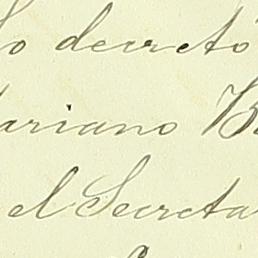 lo decretó
ariano B
el Secreta